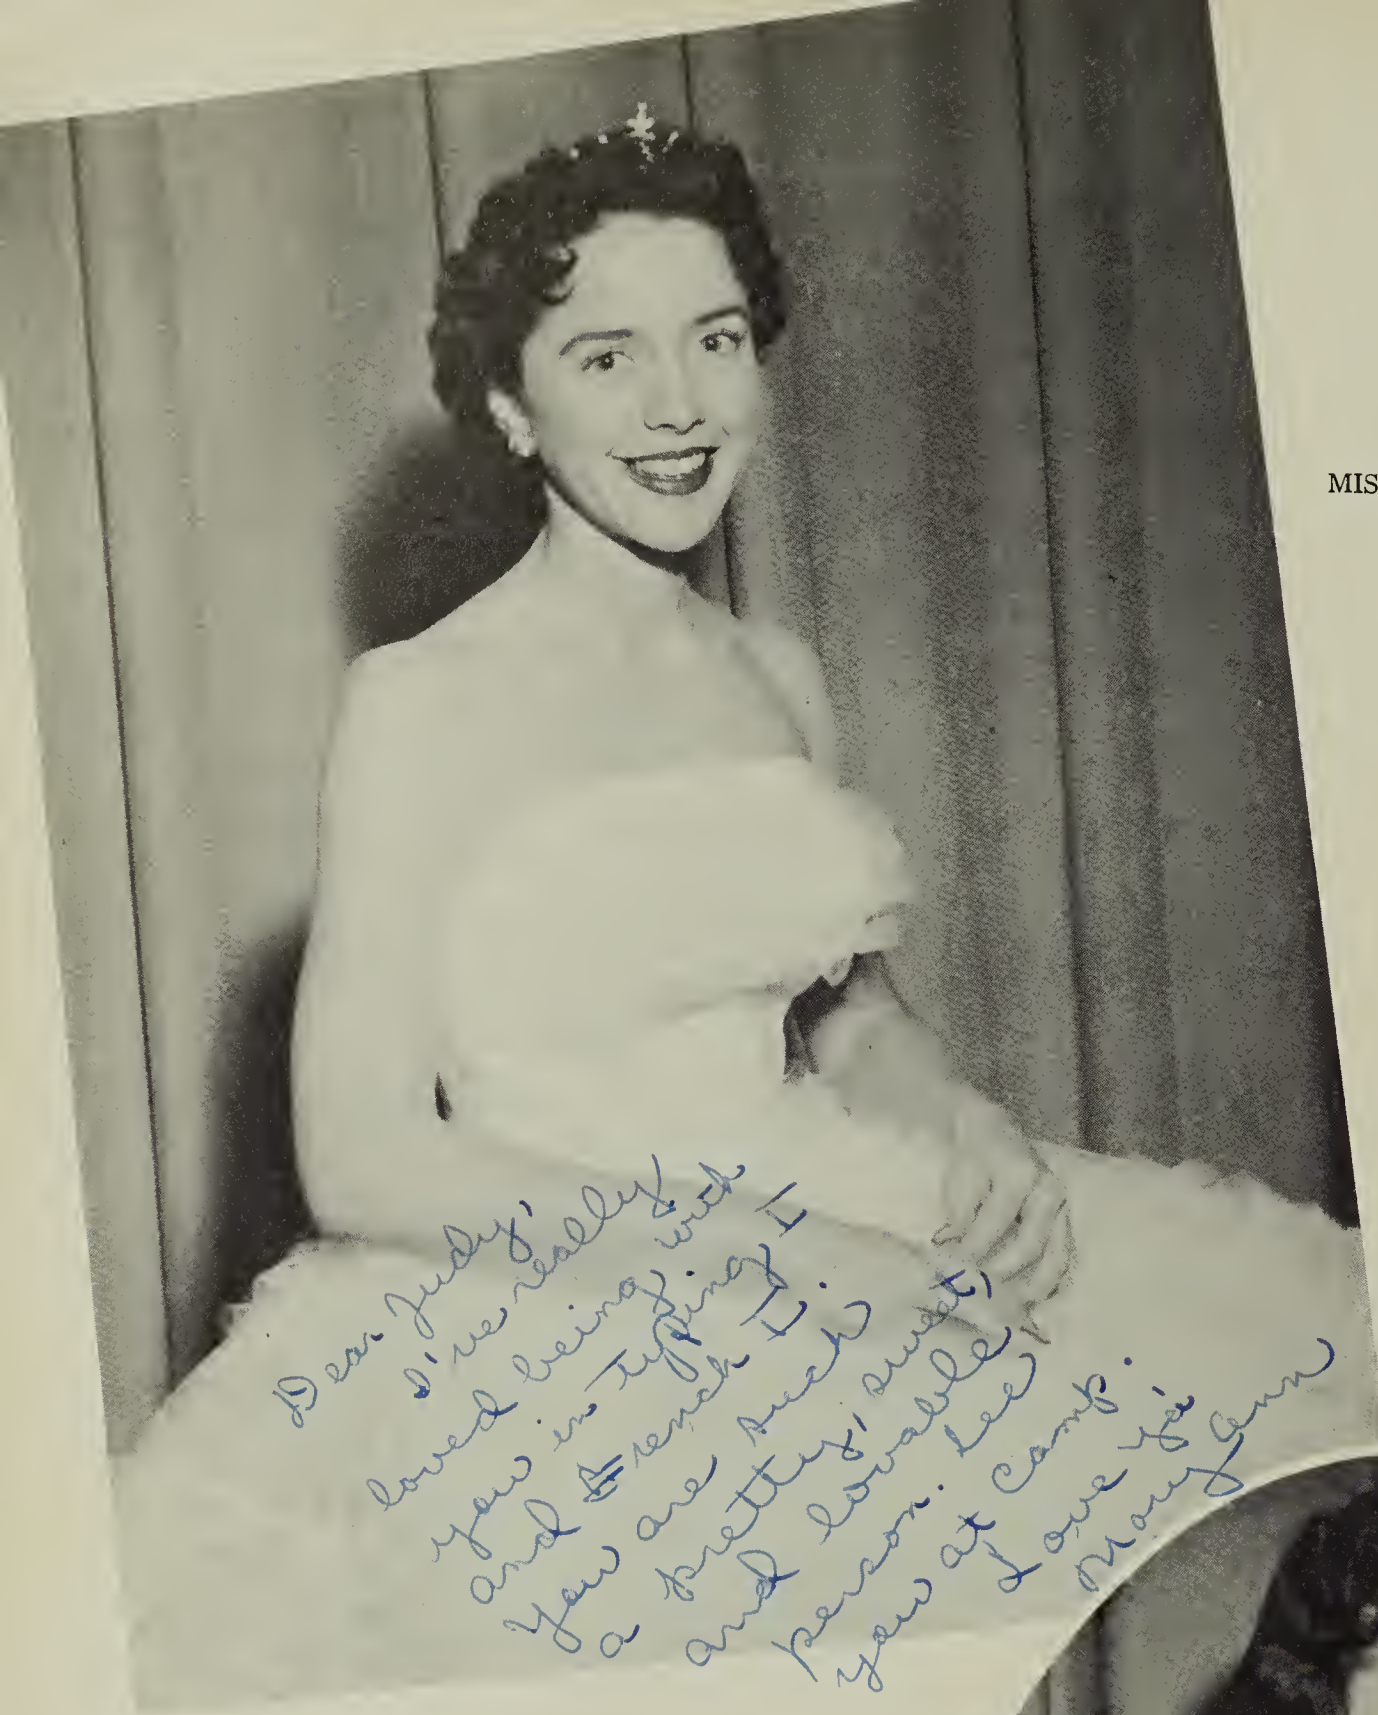 MIS
Dear Judy,
I've really
loved being with
you in typing I
and French II.
You are such
a pretty, sweet,
and lovable
person. See
you at camp.
Love ya'
Mary Ann